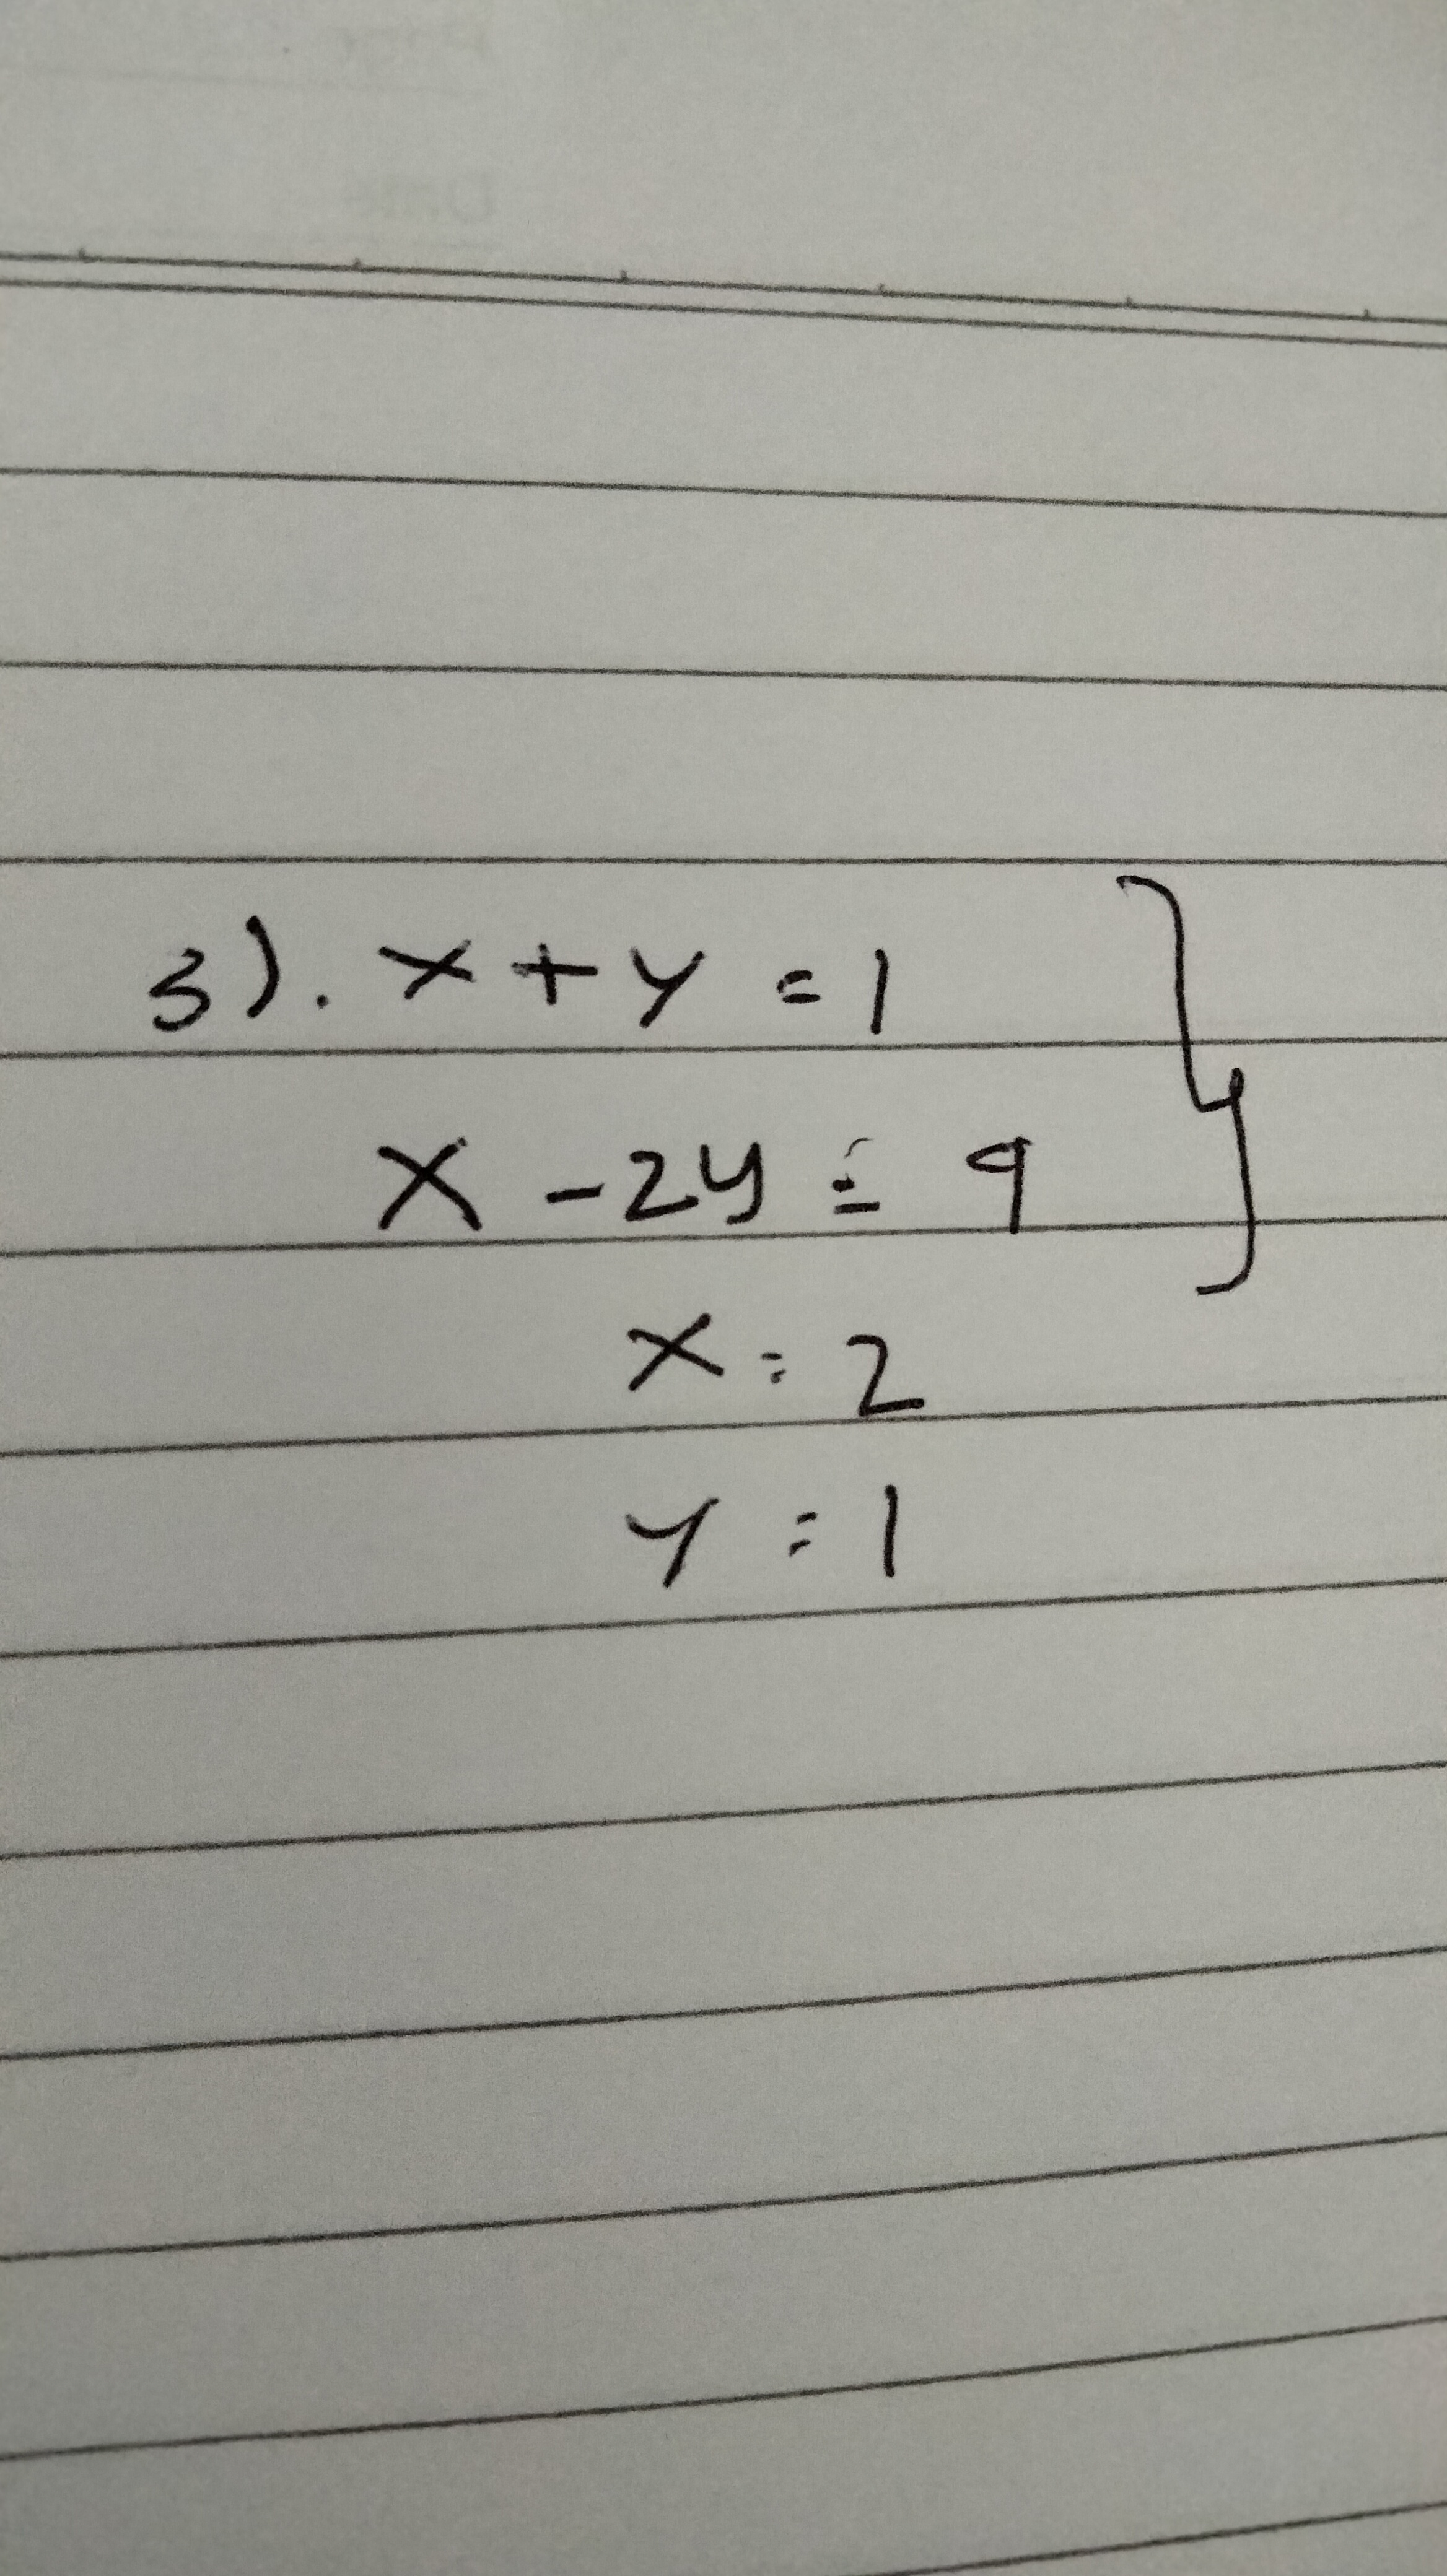 3). x + y = 1
x - 2y = 9
x = 2
y = 1